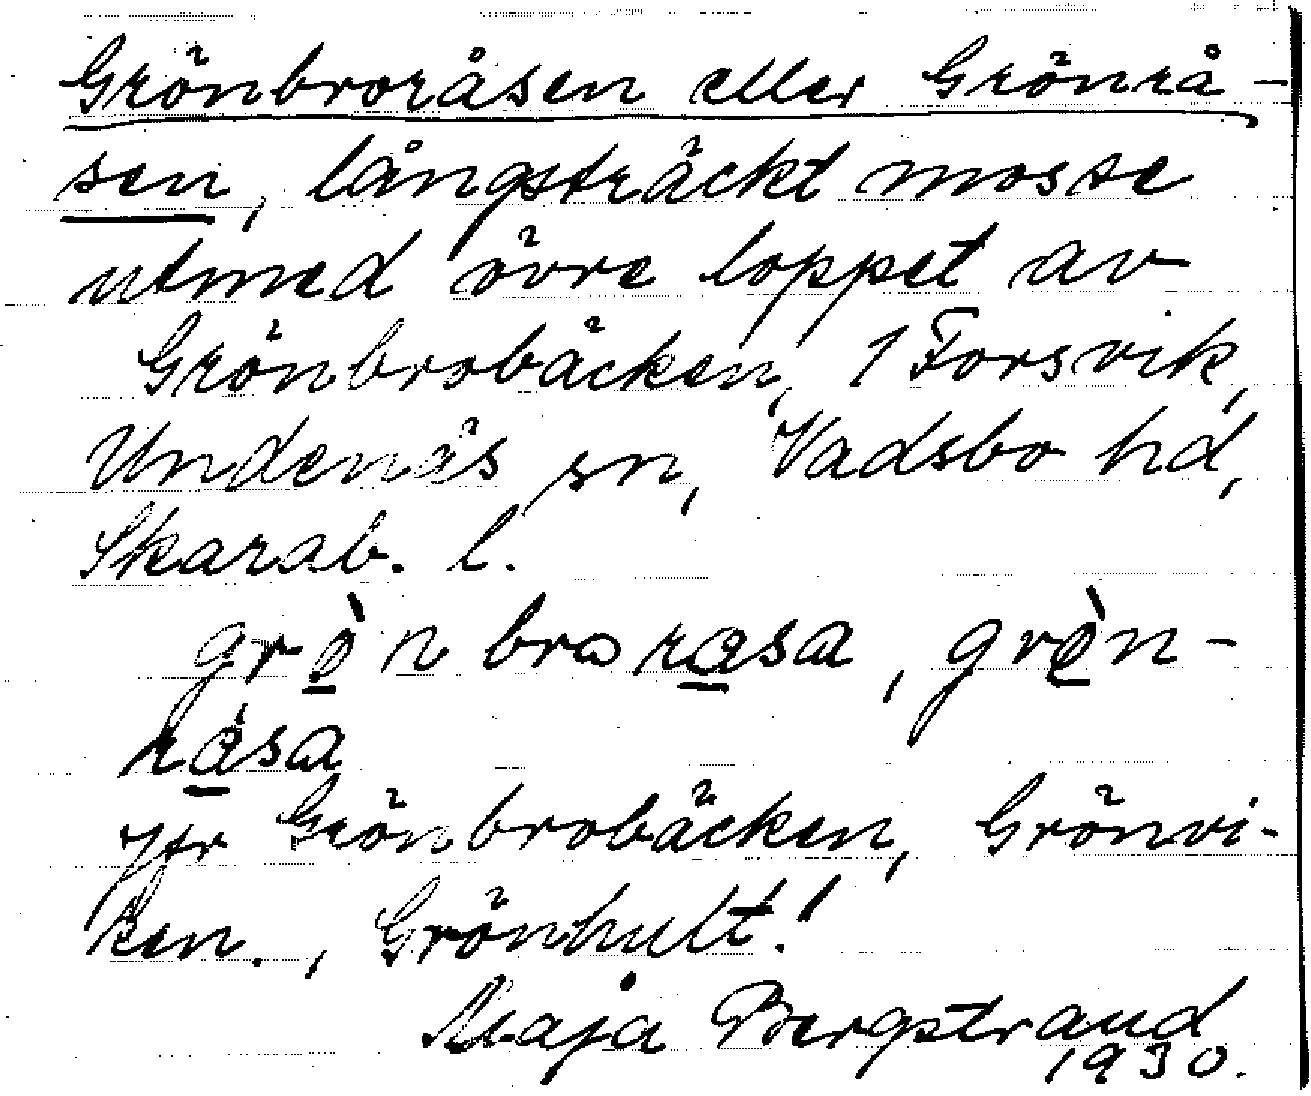 Grönbroråsen eller Grönrå-
sen, långsträckt mosse
utmed övre loppet av
Grönbrobäcken, 1 Forsvik,
Undenäs sn, Vadsbo hd,
Skarab. l.
grö̀nbrorasa, grö̀n-
rása
Jfr Grönbrobäcken, Grönvi-
ken., Grönhult!
Maja Bergstrand
1930.